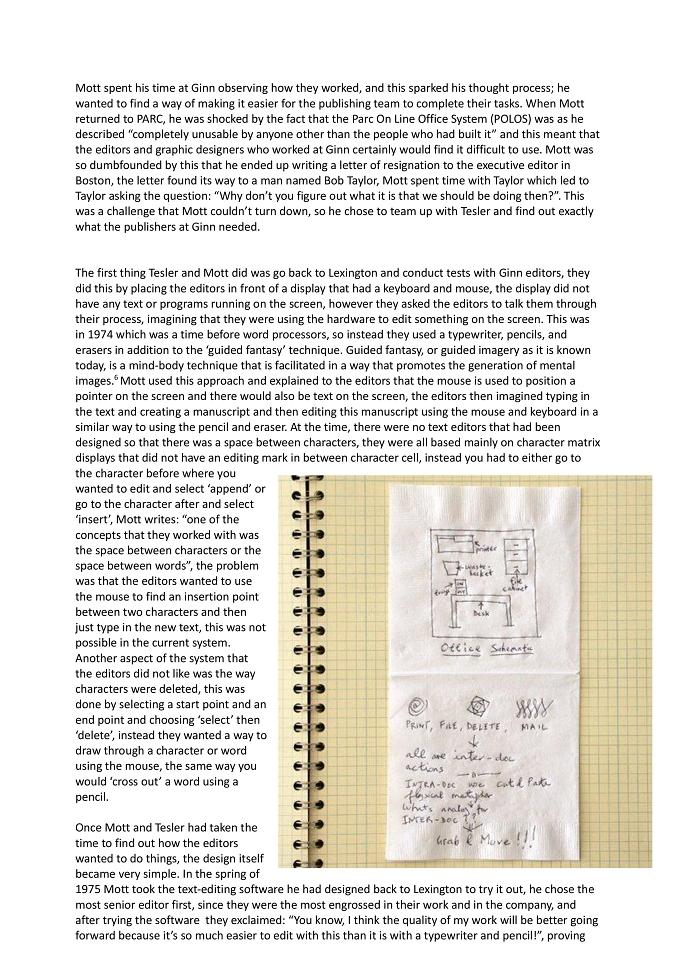 Mott spent his time at Ginn observing how they worked, and this sparked his thought process; he
wanted to find a way of making it easier for the publishing team to complete their tasks. When Mott
returned to PARC, he was shocked by the fact that the Parc On Line Office System (POLOS) was as he
described “completely unusable by anyone other than the people who had built it” and this meant that
the editors and graphic designers who worked at Ginn certainly would find it difficult to use. Mott was
so dumbfounded by this that he ended up writing a letter of resignation to the executive editor in
Boston, the letter found its way to a man named Bob Taylor, Mott spent time with Taylor which led to
Taylor asking the question: “Why don’t you figure out what it is that we should be doing then?”. This
was a challenge that Mott couldn’t turn down, so he chose to team up with Tesler and find out exactly
what the publishers at Ginn needed.
The first thing Tesler and Mott did was go back to Lexington and conduct tests with Ginn editors, they
did this by placing the editors in front of a display that had a keyboard and mouse, the display did not
have any text or programs running on the screen, however they asked the editors to talk them through
their process, imagining that they were using the hardware to edit something on the screen. This was
in 1974 which was a time before word processors, so instead they used a typewriter, pencils, and
erasers in addition to the ‘guided fantasy’ technique. Guided fantasy, or guided imagery as it is known
today, is a mind-body technique that is facilitated in a way that promotes the generation of mental
images.⁶ Mott used this approach and explained to the editors that the mouse is used to position a
pointer on the screen and there would also be text on the screen, the editors then imagined typing in
the text and creating a manuscript and then editing this manuscript using the mouse and keyboard in a
similar way to using the pencil and eraser. At the time, there were no text editors that had been
designed so that there was a space between characters, they were all based mainly on character matrix
displays that did not have an editing mark in between character cell, instead you had to either go to
the character before where you
wanted to edit and select ‘append’ or
go to the character after and select
‘insert’, Mott writes: “one of the
concepts that they worked with was
the space between characters or the
space between words”, the problem
was that the editors wanted to use
the mouse to find an insertion point
between two characters and then
just type in the new text, this was not
possible in the current system.
Another aspect of the system that
the editors did not like was the way
characters were deleted, this was
done by selecting a start point and an
end point and choosing ‘select’ then
‘delete’, instead they wanted a way to
draw through a character or word
using the mouse, the same way you
would ‘cross out’ a word using a
pencil.
Once Mott and Tesler had taken the
time to find out how the editors
wanted to do things, the design itself
became very simple. In the spring of
1975 Mott took the text-editing software he had designed back to Lexington to try it out, he chose the
most senior editor first, since they were the most engrossed in their work and in the company, and
after trying the software they exclaimed: “You know, I think the quality of my work will be better going
forward because it’s so much easier to edit with this than it is with a typewriter and pencil!”, proving
printer
waste-
basket
file
cabinet
Desk
Office Schematic
PRINT, FILE, DELETE, MAIL
all are inter-doc
actions
INTRA-DOC use cut & Paste
physical metaphor
Whats analog for
INTER-DOC ?
Grab & Move !!!